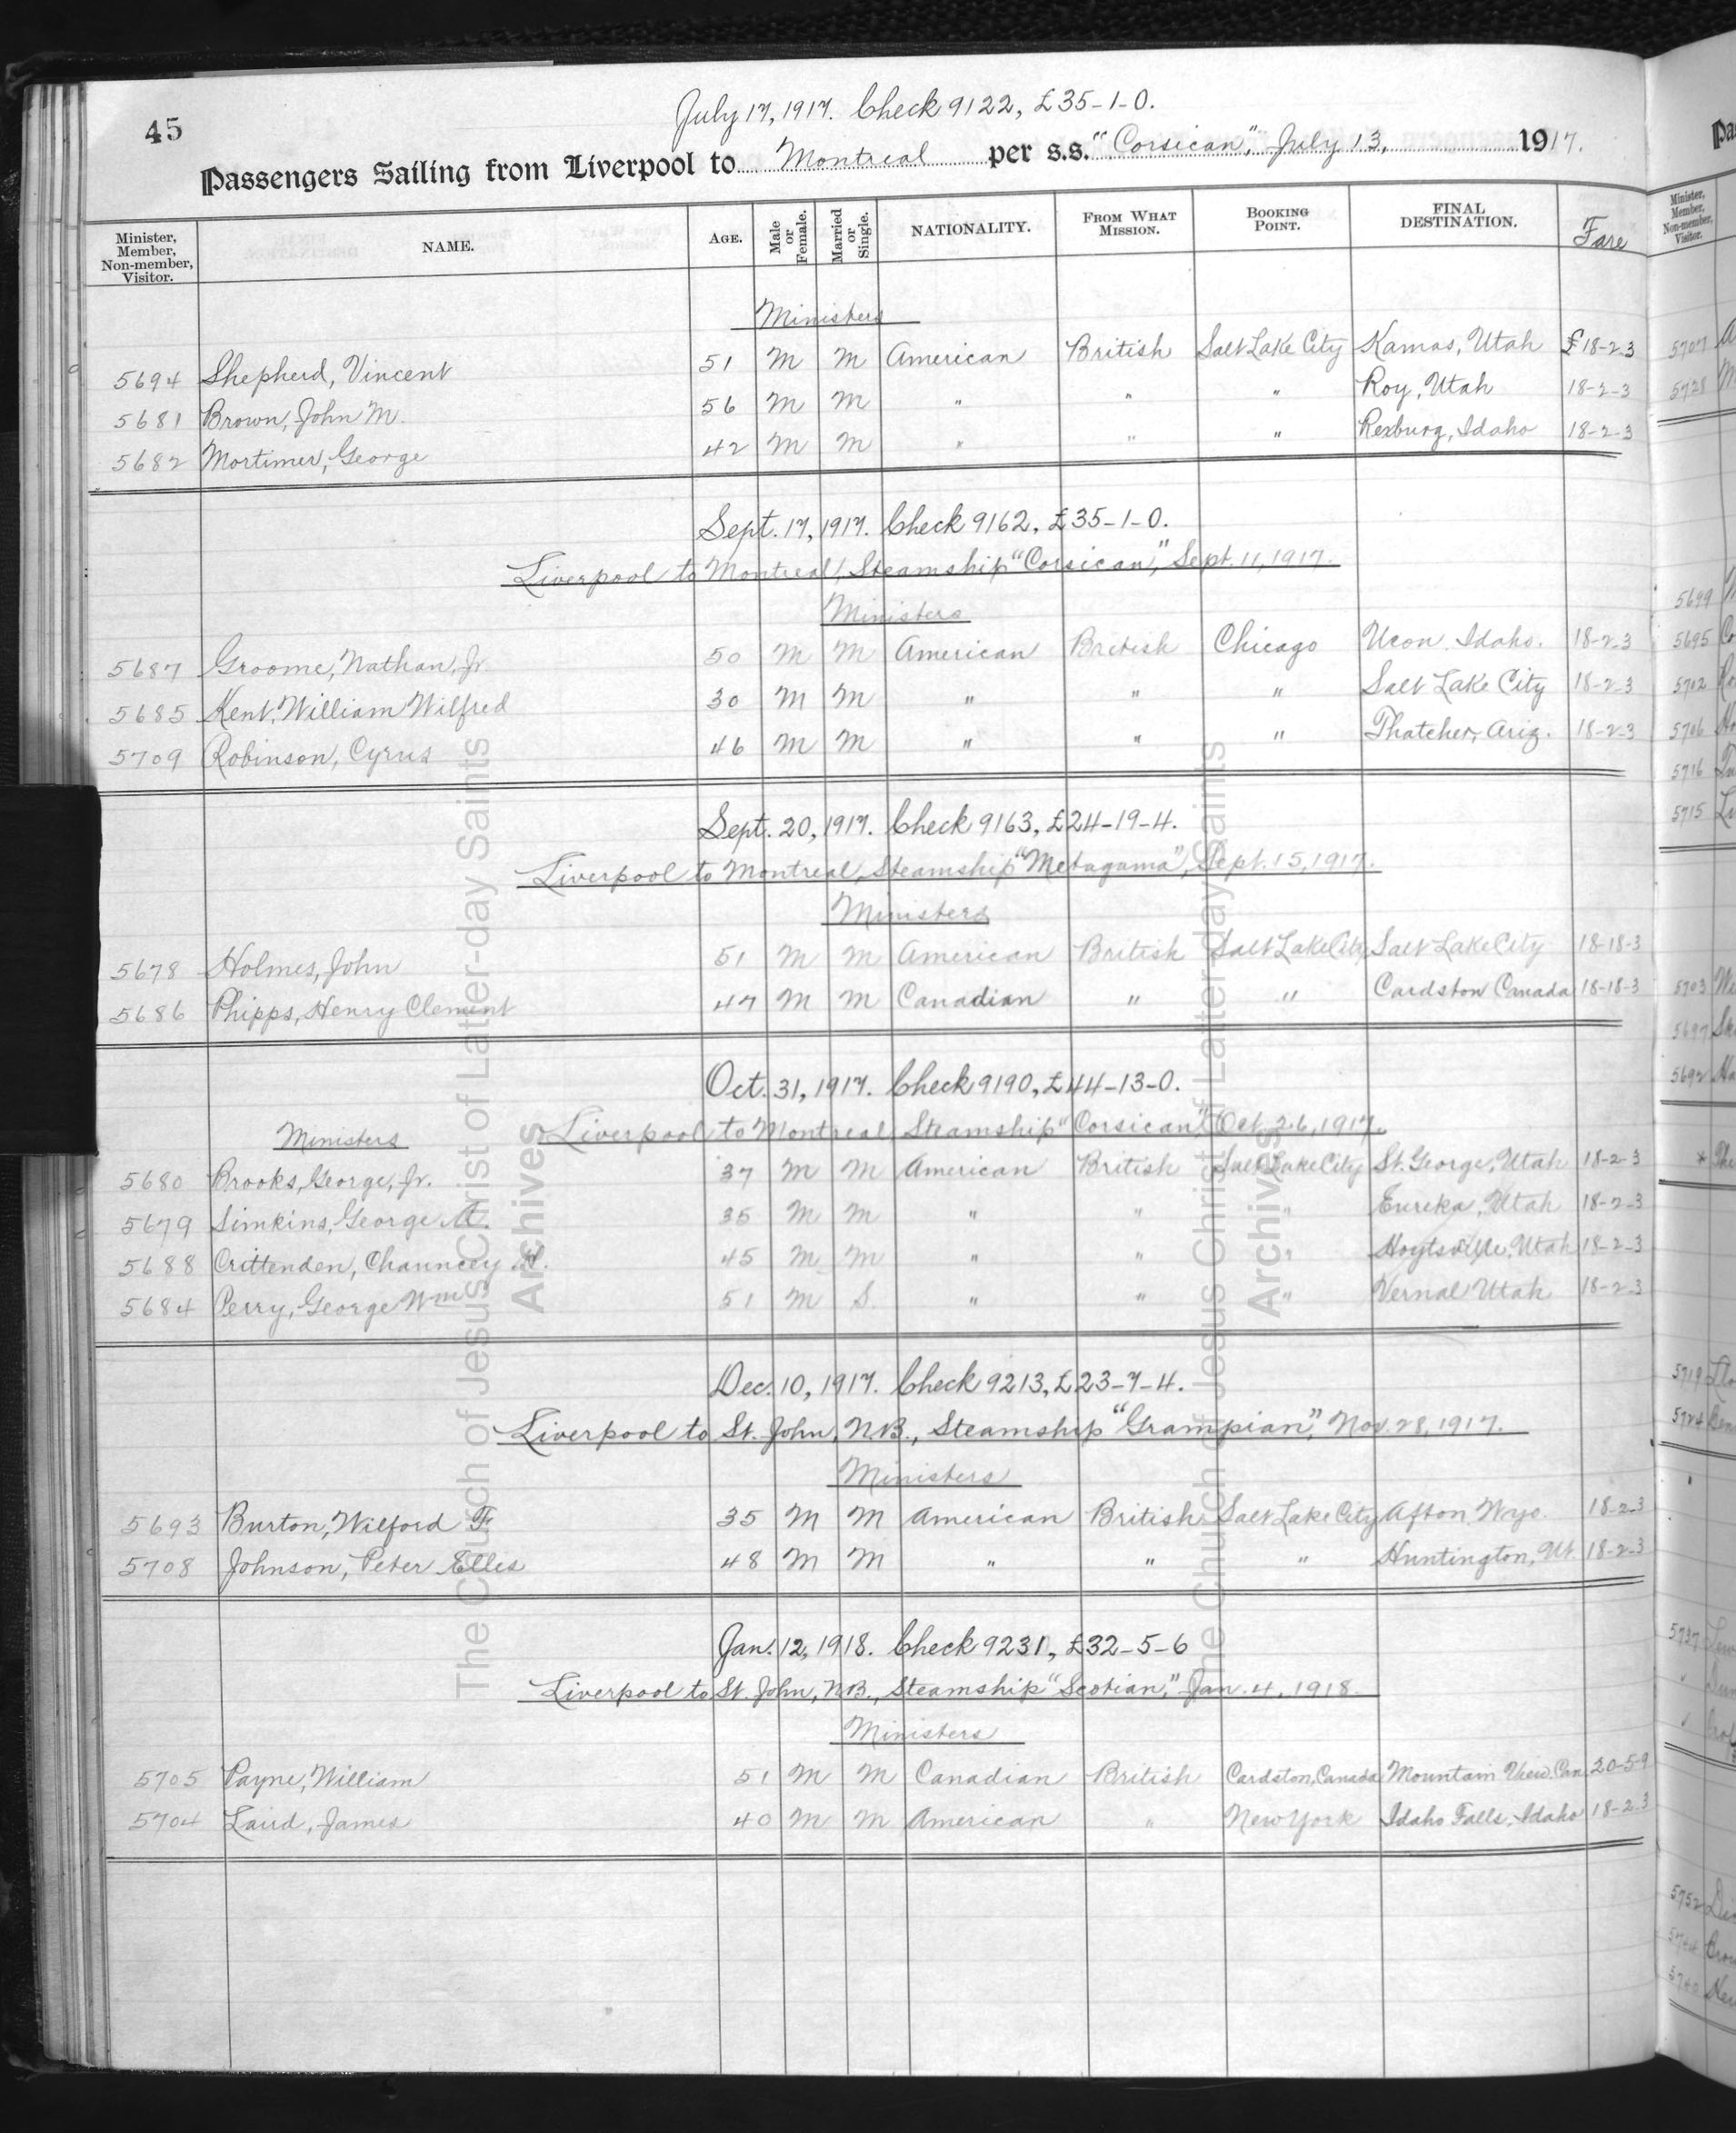 45
July 17, 1917. Check 9122, £35-1-0.
Passengers Sailing from Liverpool to Montreal per s.s. "Corsican," July 13, 1917.
Minister, Member, Non-member, Visitor. NAME. AGE. Male or Female. Married or Single. NATIONALITY. FROM WHAT MISSION. BOOKING POINT. FINAL DESTINATION. Fare
Ministers
5694 Shepherd, Vincent 51 M M American British Salt Lake City Kamas, Utah £18-2-3
5681 Brown, John M. 56 M M " " " Roy, Utah 18-2-3
5682 Mortimer, George 42 M M " " " Rexburg, Idaho 18-2-3
Sept. 17, 1917. Check 9162, £35-1-0.
Liverpool to Montreal, Steamship "Corsican," Sept. 11, 1917.
Ministers
5687 Groome, Nathan, Jr. 50 M M American British Chicago Ucon, Idaho. 18-2-3
5685 Kent, William Wilfred 30 M M " " " Salt Lake City 18-2-3
5709 Robinson, Cyrus 46 M M " " " Thatcher, Ariz. 18-2-3
Sept. 20, 1917. Check 9163, £24-19-4.
Liverpool to Montreal, Steamship "Metagama", Sept. 15, 1917.
Ministers
5678 Holmes, John 51 M M American British Salt Lake City Salt Lake City 18-18-3
5686 Phipps, Henry Clement 47 M M Canadian " " Cardston Canada 18-18-3
Oct. 31, 1917. Check 9190, £44-13-0.
Liverpool to Montreal Steamship "Corsican," Oct. 26, 1917.
Ministers
5680 Brooks, George, Jr. 37 M M American British Salt Lake City St. George, Utah 18-2-3
5679 Simkins, George A. 35 M M " " " Eureka, Utah 18-2-3
5688 Crittenden, Chauncey 45 M M " " " Hoytsville, Utah 18-2-3
5684 Perry, George Wm 51 M S. " " " Vernal Utah 18-2-3
Dec. 10, 1917. Check 9213, £23-7-4.
Liverpool to St. John, N.B., Steamship "Grampian," Nov. 28, 1917.
Ministers
5693 Burton, Wilford F. 35 M M American British Salt Lake City Afton, Wyo. 18-2-3
5708 Johnson, Peter Ellis 48 M M " " " Huntington, Ut. 18-2-3
Jan. 12, 1918. Check 9231, £32-5-6
Liverpool to St. John, N.B., Steamship "Scotian," Jan. 4, 1918.
Ministers
5705 Payne, William 51 M M Canadian British Cardston, Canada Mountain View, Can. 20-5-9
5704 Laird, James 40 M M American " New York Idaho Falls, Idaho 18-2-3
The Church of Jesus Christ of Latter-day Saints
Archives
The Church of Jesus Christ of Latter-day Saints
Archives
Minister, Member, Non-member, Visitor.
5707
5728
5699
5695
5702
5706
5716
5715
5703
5697
5692
5719
5724
5737
5752